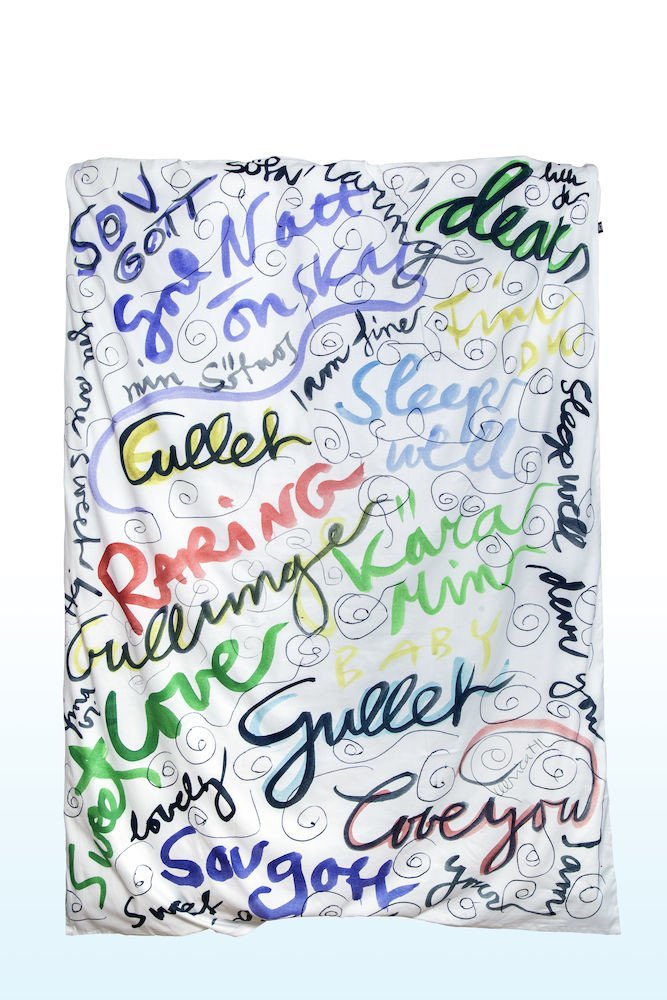 SÖPA
raring
SOV
GOTT
dear
God Natt
önskar
Fint
DU
min Sötnos
I am fine
Sleep
well
you are sweet
Gullet
Sleep well
RARING
Kära
Min
Gullunge
dear you
BABY
Love
Gullet
Sweet
lovely
Love you
Sov gott
Sweet
your
I am